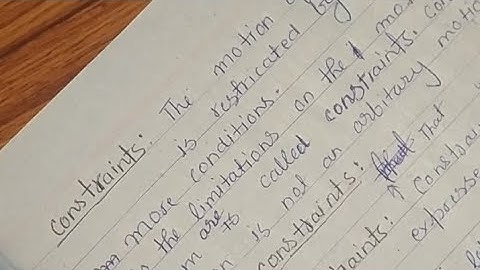 Constraints: The motion
is restricated by
more conditions.
the limitations on the mo
are called constraints. con
is not an arbitary motio
constraints: That
constrai
aints: expresse